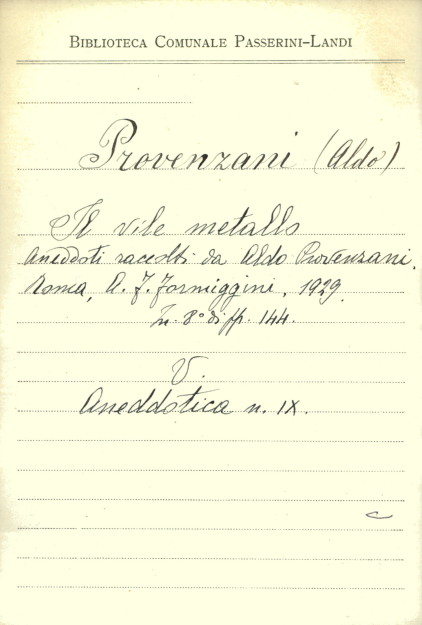 Biblioteca Comunale Passerini-Landi
Provenzani (Aldo)
Il vile metallo
Aneddoti raccolti da Aldo Provenzani.
Roma, A. F. Formiggini, 1929.
In. 8° di pp. 144.
V.
Aneddotica n. IX.
c